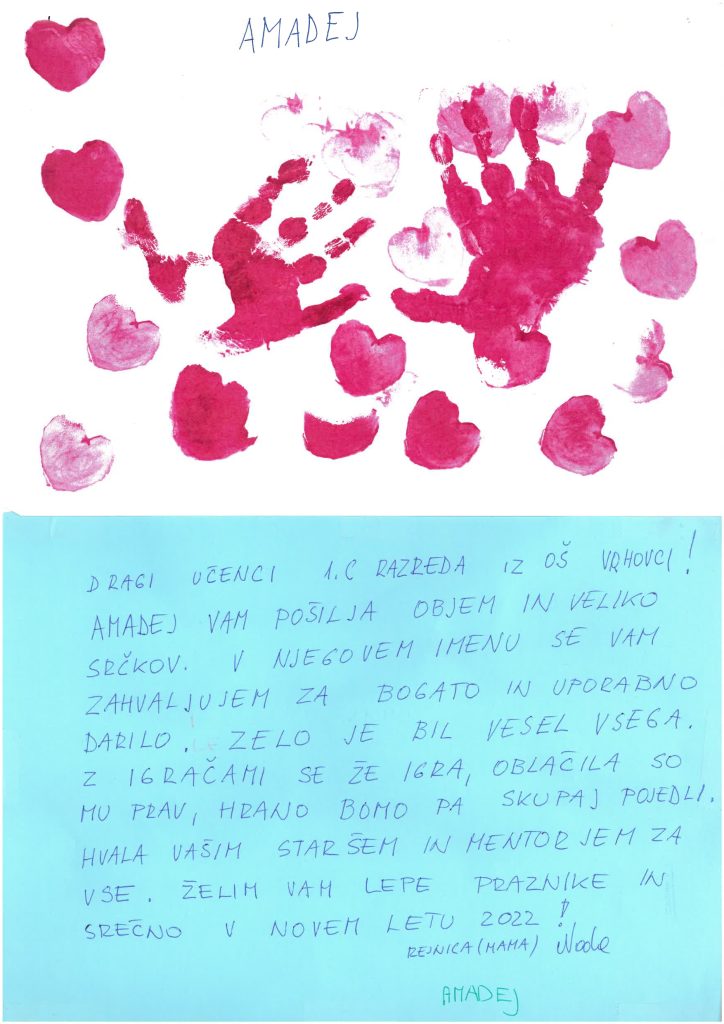 AMADEJ
DRAGI UČENCI 1.C RAZREDA IZ OŠ VRHOVCI!
AMADEJ VAM POŠILJA OBJEM IN VELIKO
SRČKOV. V NJEGOVEM IMENU SE VAM
ZAHVALJUJEM ZA BOGATO IN UPORABNO
DARILO. ZELO JE BIL VESEL VSEGA.
Z IGRAČAMI SE ŽE IGRA, OBLAČILA SO
MU PRAV, HRANO BOMO PA SKUPAJ POJEDLI.
HVALA VAŠIM STARŠEM IN MENTORJEM ZA
VSE. ŽELIM VAM LEPE PRAZNIKE IN
SREČNO V NOVEM LETU 2022!
REJNICA (MAMA)
AMADEJ